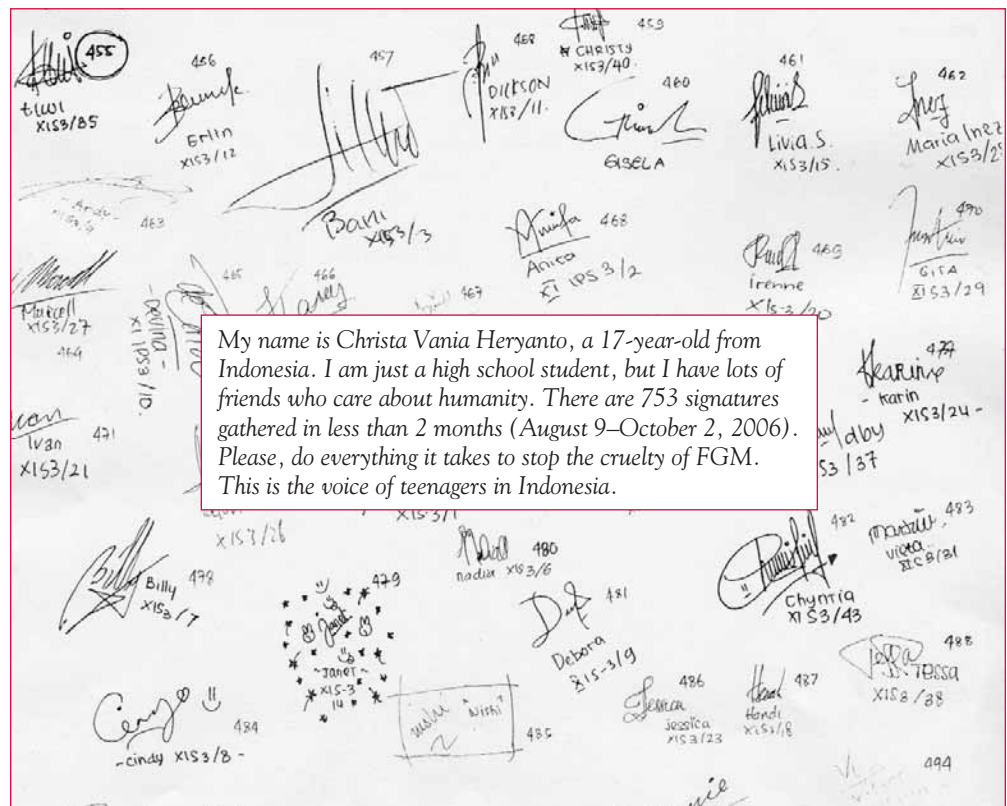 455
tiwi
XIS3/35
456
Erlin
XIS3/12
457
Bani
XIS3/3
458
DICKSON
XIS3/11.
459
CHRISTY
XIS3/40.
460
GISELA
461
Livia S.
XIS3/15.
462
Inez
Maria Inez
XIS3/2
-Andy-
463
Marcell
XIS3/27
464
465
-Devina-
XI IPS3/10.
466
467
468
Anita
XI IPS 3/2
469
Irenne
XIS-3/20
470
GITA
XIS3/29
My name is Christa Vania Heryanto, a 17-year-old from
Indonesia. I am just a high school student, but I have lots of
friends who care about humanity. There are 753 signatures
gathered in less than 2 months (August 9–October 2, 2006).
Please, do everything it takes to stop the cruelty of FGM.
This is the voice of teenagers in Indonesia.
Ivan
471
XIS3/21
- Karin
XIS3/24-
dby
S3/37
XIS3/26
XIS-3/1
Billy
478
Billy
XIS3/7
479
Janet
~JANET~
XIS-3
14
480
nadia XIS3/6
481
Debora
XIS-3/9
482
Chyntia
XIS3/43
483
XIS3/31
Cindy
484
-cindy XIS3/8-
Nishi
485
486
Jessica
jessica
XIS3/23
487
Hendi
XIS3/18
488
Tessa
TESSA
XIS3/38
494